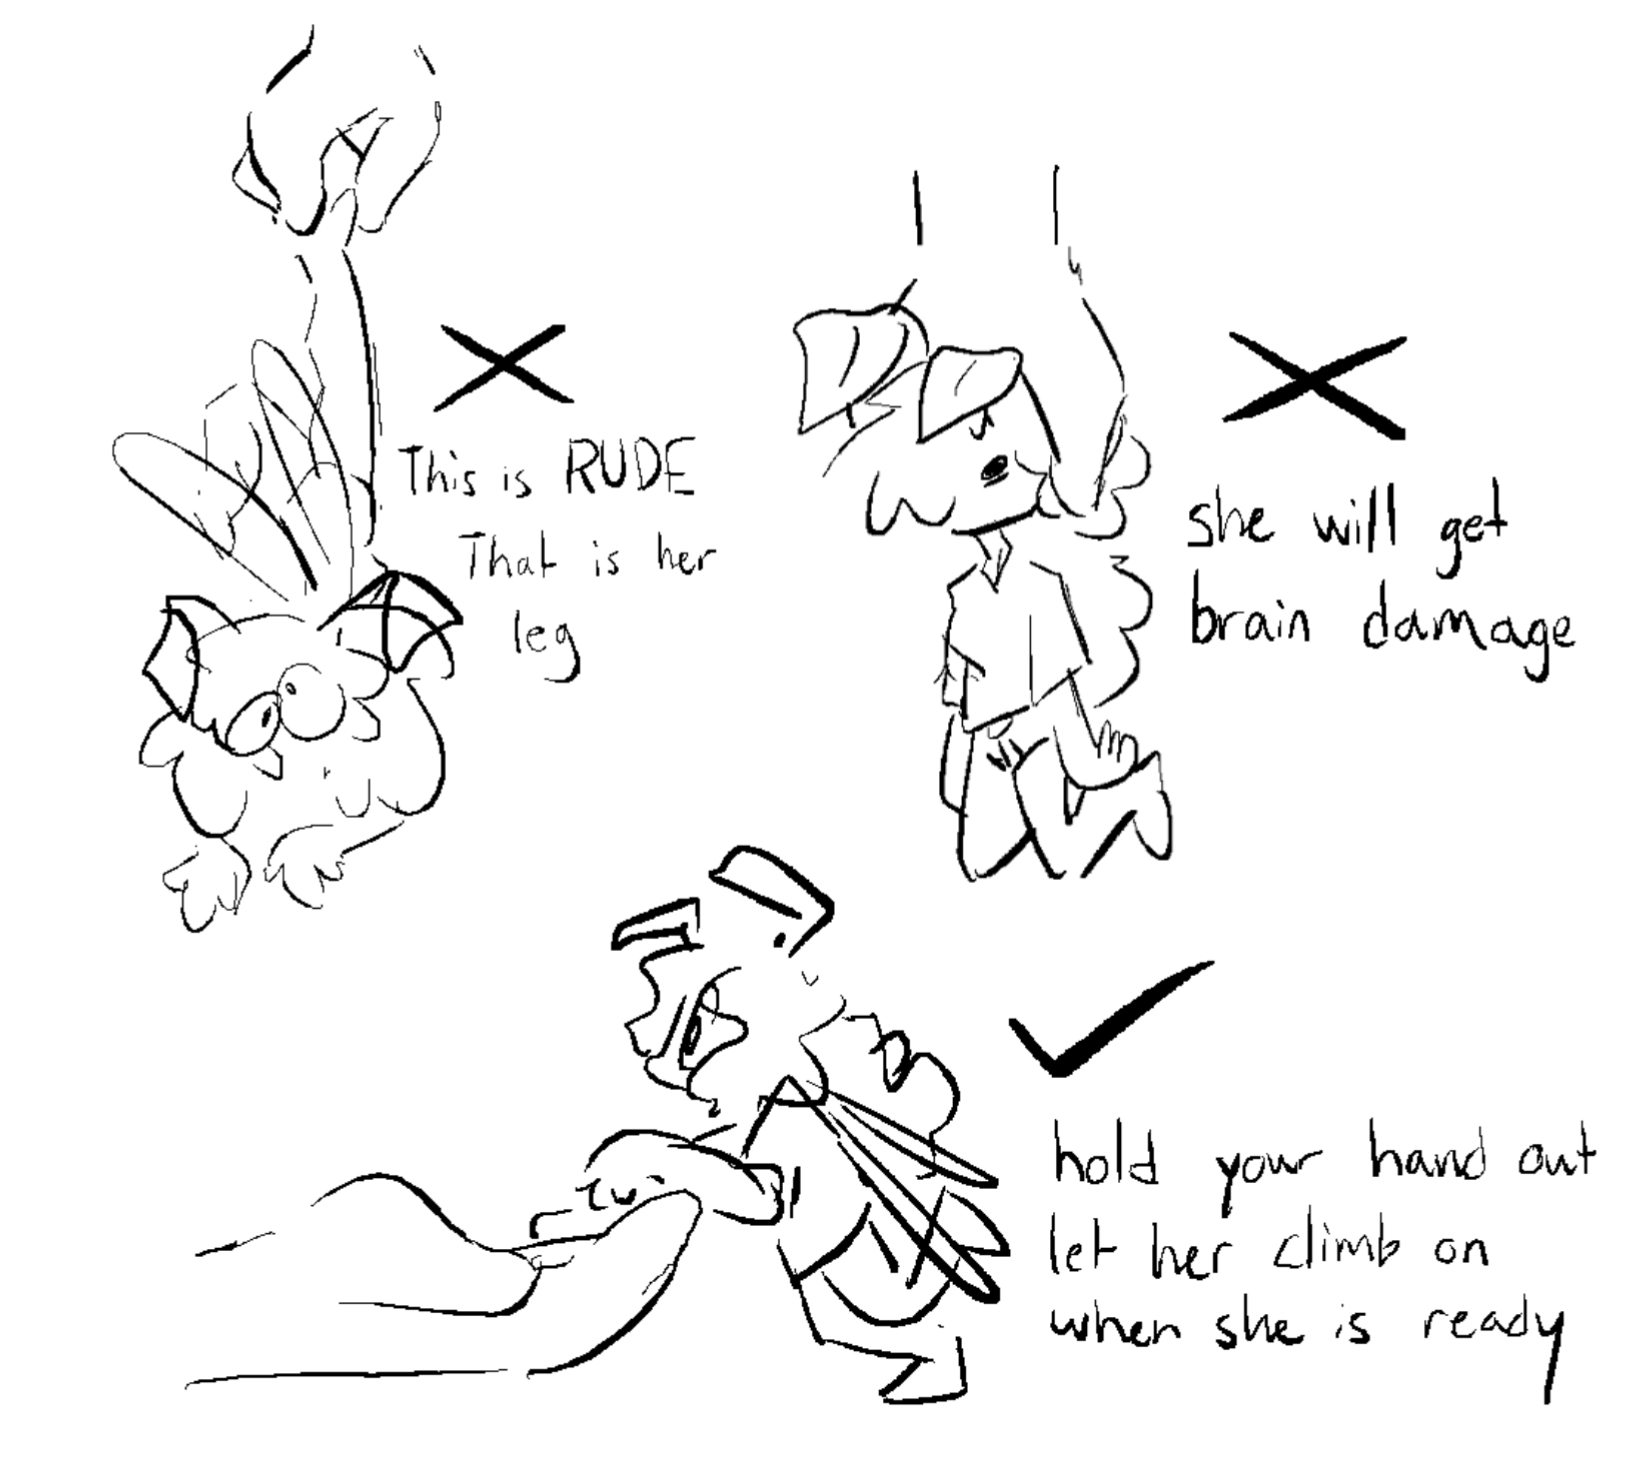 This is RUDE
That is her
leg
she will get
brain damage
hold your hand out
let her climb on
when she is ready